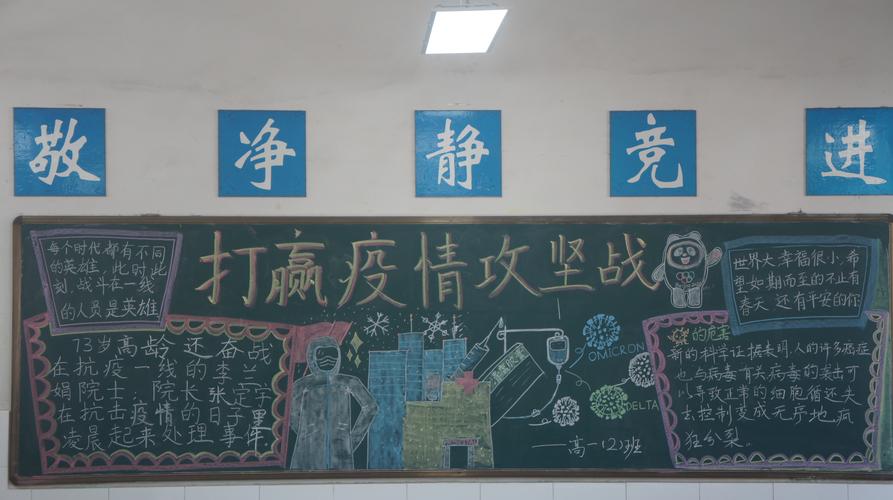 敬 净 静 竞 进
打赢疫情攻坚战
每个时代都有不同
的英雄，此时此
刻，战斗在一线
的人员是英雄
73岁高龄还奋战
在抗疫一线的李兰
娟院士；院长张定宇
在抗击疫情的日子里
凌晨起来处理事件
OMICRON
DELTA
HOSPITAL
——高一(2)班
世界大，幸福很小，希
望如期而至的不止有
春天 还有平安的你
的危害
新的科学证据表明，人的许多癌症
也与病毒有关病毒的袭击可
以导致正常的细胞循还失
去控制变成无序地疯
狂分裂。